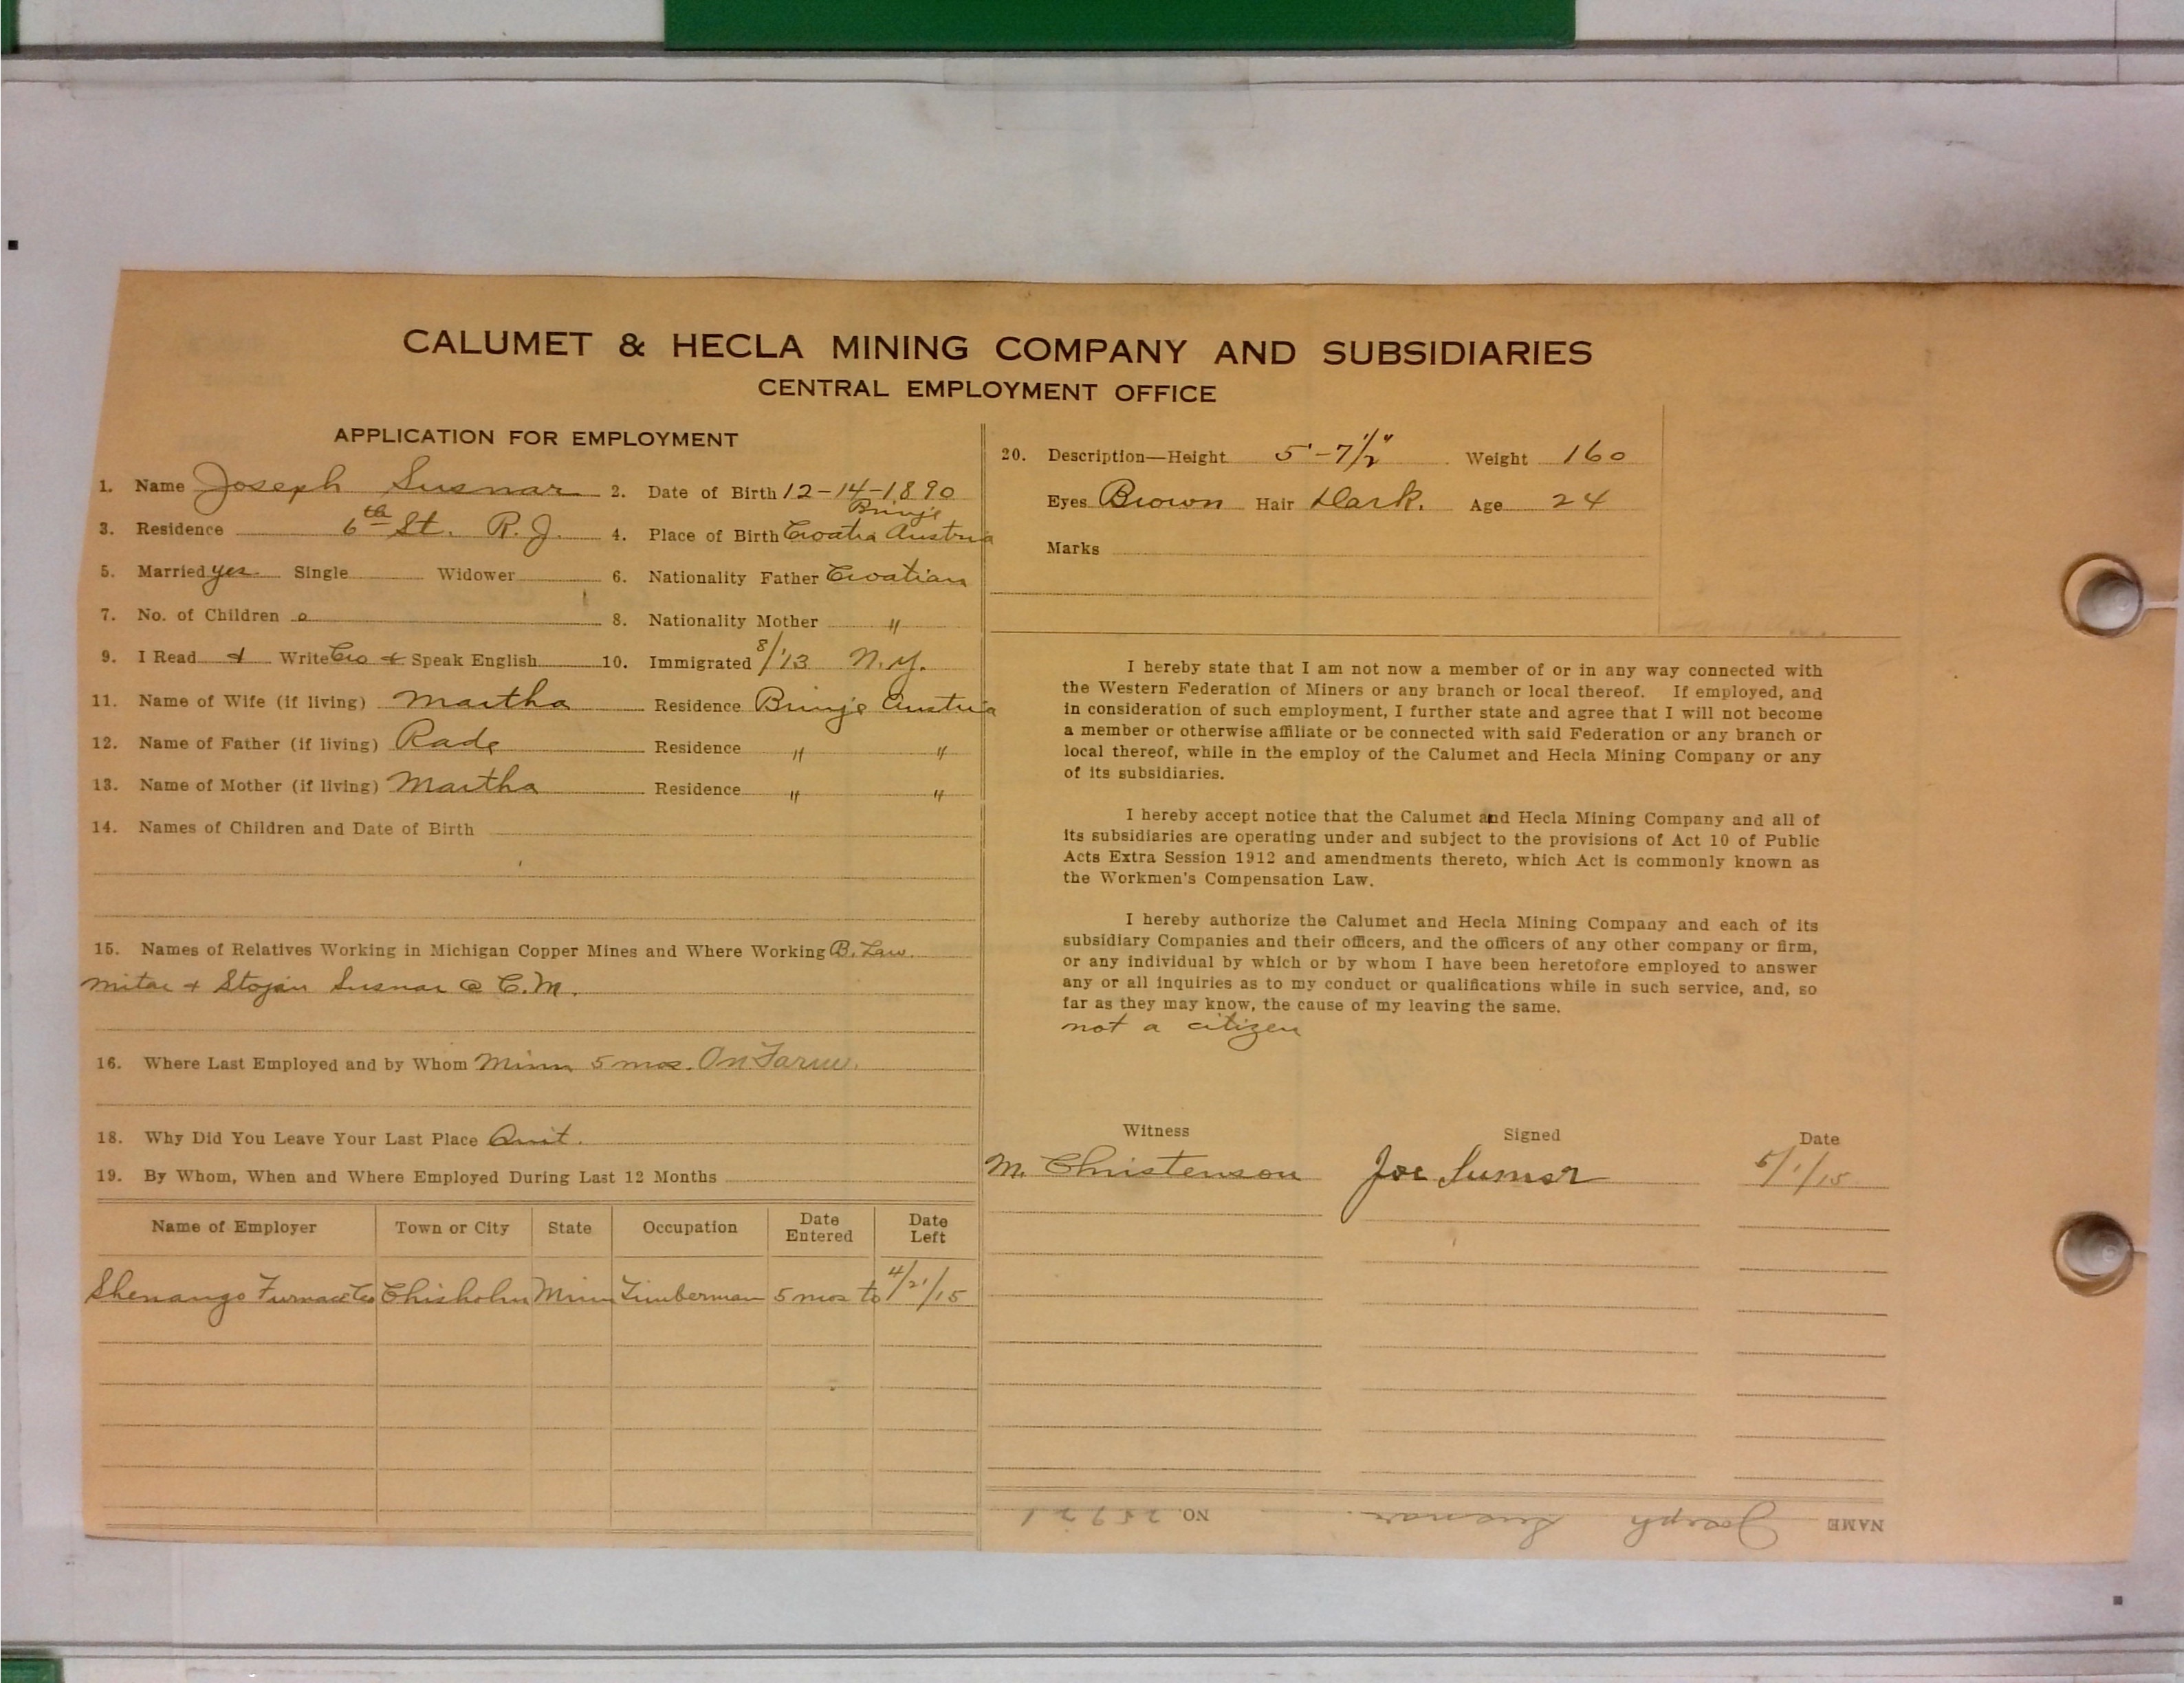 CALUMET & HECLA MINING COMPANY AND SUBSIDIARIES
CENTRAL EMPLOYMENT OFFICE
APPLICATION FOR EMPLOYMENT
1. Name Joseph Susnar 2. Date of Birth 12-14-1890
Brinje
3. Residence 6th St. R.J. 4. Place of Birth Croatia Austria
5. Married yes Single Widower 6. Nationality Father Croatian
7. No. of Children 0 8. Nationality Mother "
9. I Read & Write Cro & Speak English 10. Immigrated 8/'13 N.Y.
11. Name of Wife (if living) Martha Residence Brinje Austria
12. Name of Father (if living) Rade Residence " "
13. Name of Mother (if living) Martha Residence " "
14. Names of Children and Date of Birth
15. Names of Relatives Working in Michigan Copper Mines and Where Working B. Law.
Mitar & Stojan Susnar @ C.M.
16. Where Last Employed and by Whom Minn 5 mos. On Farm.
18. Why Did You Leave Your Last Place Quit.
19. By Whom, When and Where Employed During Last 12 Months
Name of Employer Town or City State Occupation Date Entered Date Left
Shenango Furnace Co Chisholm Minn Timberman 5 mos to 4/21/15
20. Description—Height 5'-7 1/2" Weight 160
Eyes Brown Hair Dark. Age 24
Marks
I hereby state that I am not now a member of or in any way connected with
the Western Federation of Miners or any branch or local thereof. If employed, and
in consideration of such employment, I further state and agree that I will not become
a member or otherwise affiliate or be connected with said Federation or any branch or
local thereof, while in the employ of the Calumet and Hecla Mining Company or any
of its subsidiaries.
I hereby accept notice that the Calumet and Hecla Mining Company and all of
its subsidiaries are operating under and subject to the provisions of Act 10 of Public
Acts Extra Session 1912 and amendments thereto, which Act is commonly known as
the Workmen's Compensation Law.
I hereby authorize the Calumet and Hecla Mining Company and each of its
subsidiary Companies and their officers, and the officers of any other company or firm,
or any individual by which or by whom I have been heretofore employed to answer
any or all inquiries as to my conduct or qualifications while in such service, and, so
far as they may know, the cause of my leaving the same.
not a citizen
Witness Signed Date
M. Christenson Joe Susnar 5/1/15
NAME Joseph Susnar. NO. 25921